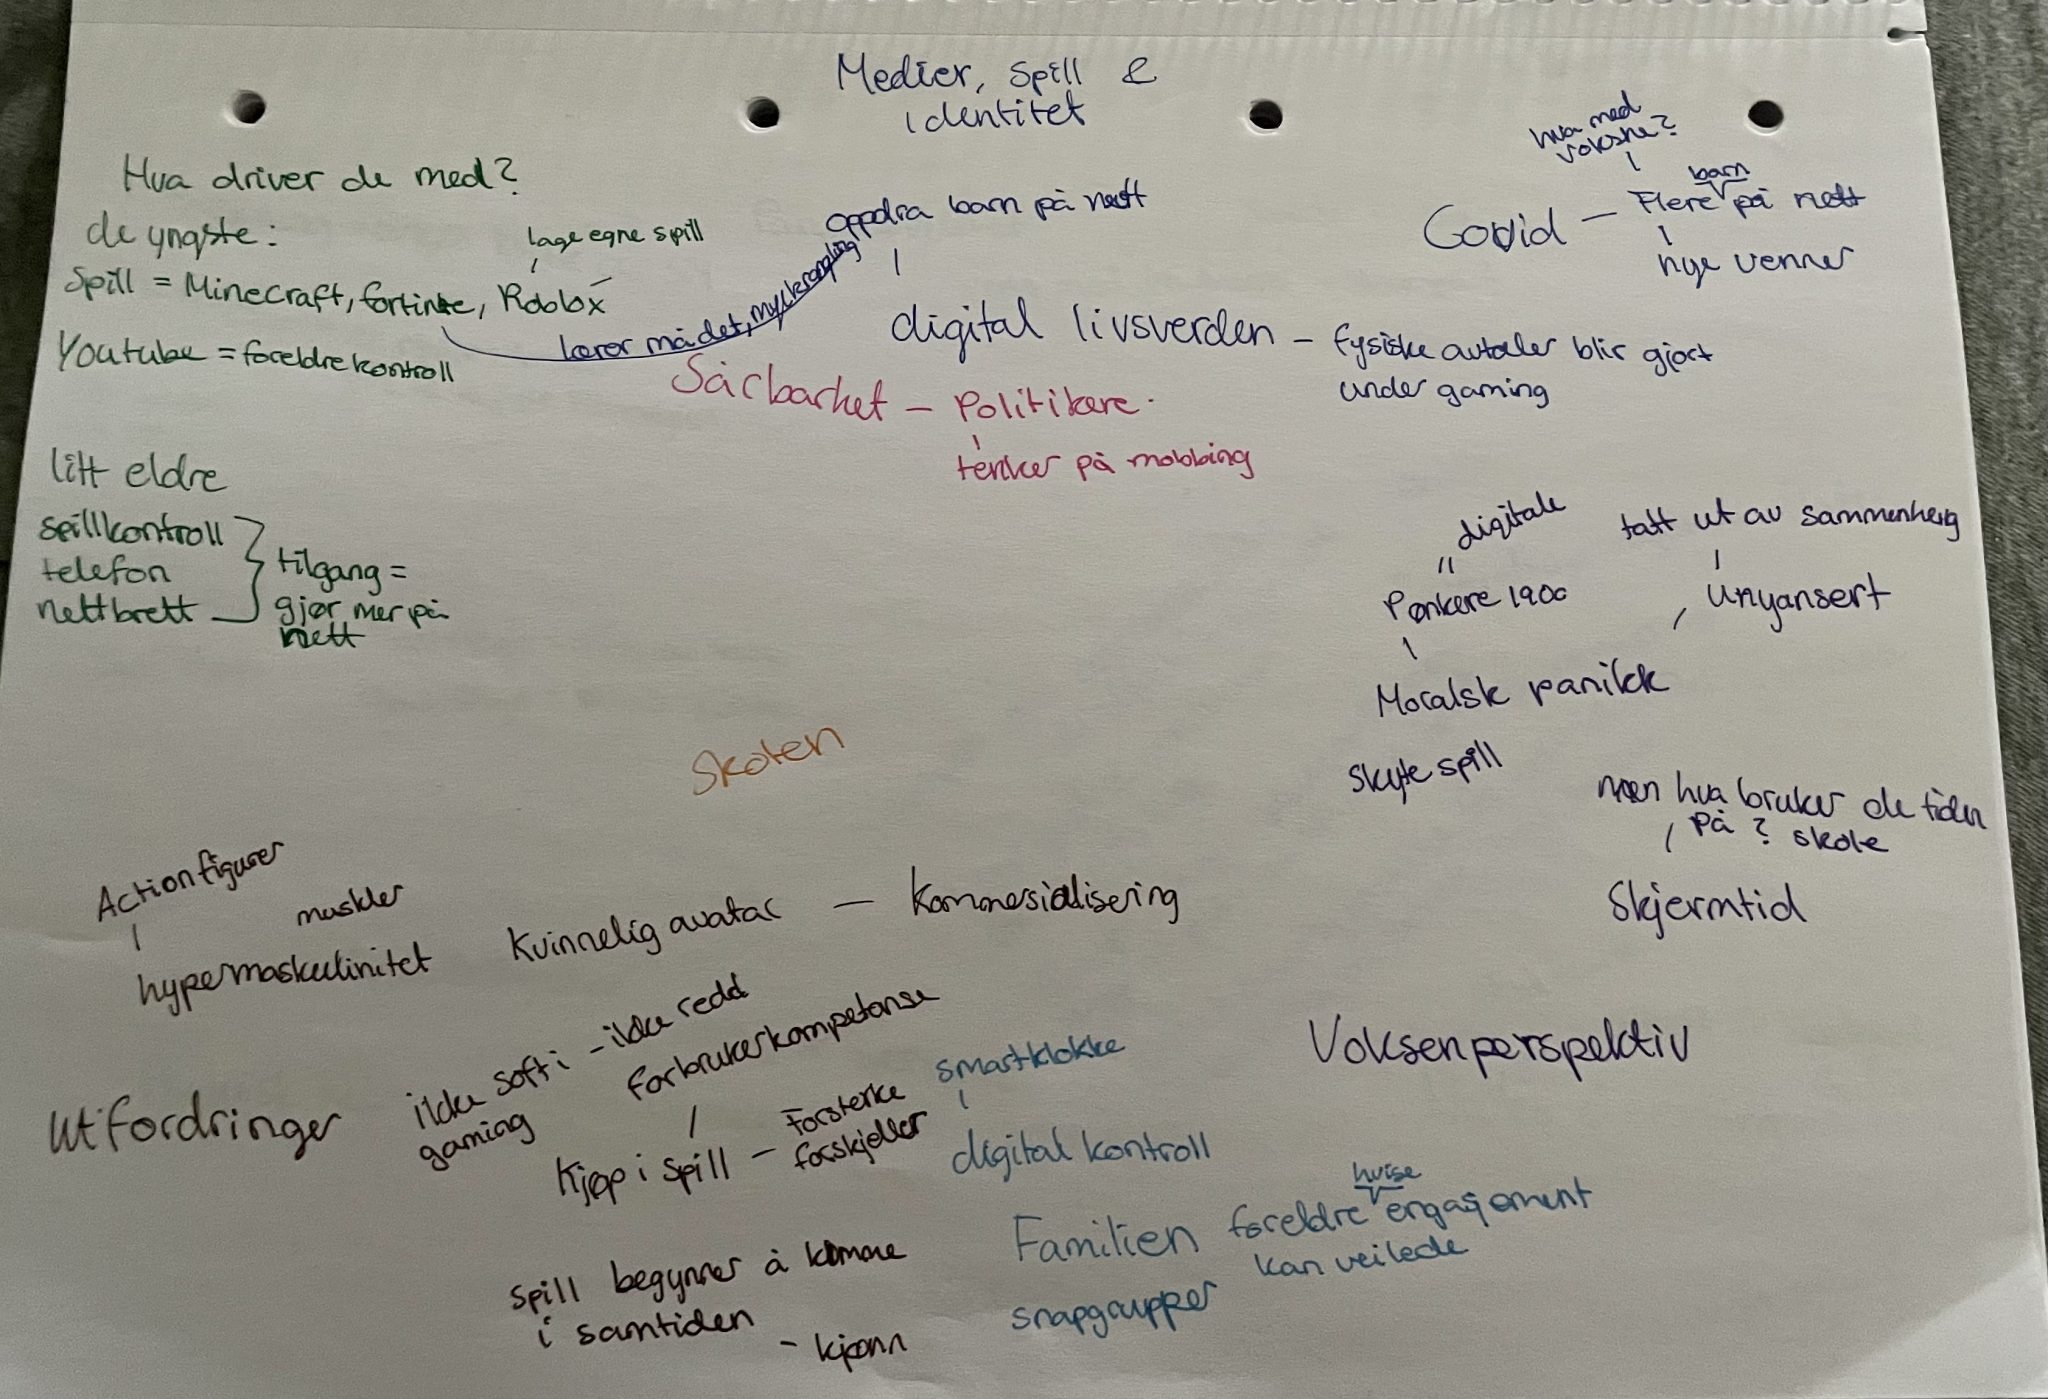 Medier, spill &
identitet
Hva driver de med?
de yngste:
lage egne spill
Spill = Minecraft, fortinte, Roblox
Youtube = foreldrekontroll
lærer må det, mye krangling
oppdra barn på nett
digital livsverden – fysiske avtaler blir gjort
under gaming
hva med
voksne?
barn
Covid – Flere på nett
nye venner
Sårbarhet – Politikere.
tenker på mobbing
litt eldre
spillkontroll
telefon
nettbrett
tilgang =
gjør mer på
nett
digitale
Pønkere 1900
tatt ut av sammenheng
Unyansert
Moralsk panikk
Skyte spill
men hva bruker de tiden
på? skole
Skjermtid
Skolen
Actionfigurer
muskler
hypermaskulinitet
Kvinnelig avatar – Kommesialisering
Voksenperspektiv
Utfordringer
ikke soft i – ikke redd
gaming
forbrukerkompetanse
Kjøp i spill – Forsterke
forskjeller
smartklokke
digital kontroll
hvise
Familien foreldre engasjement
kan veilede
snapgrupper
spill begynner å komme
i samtiden
– kjønn